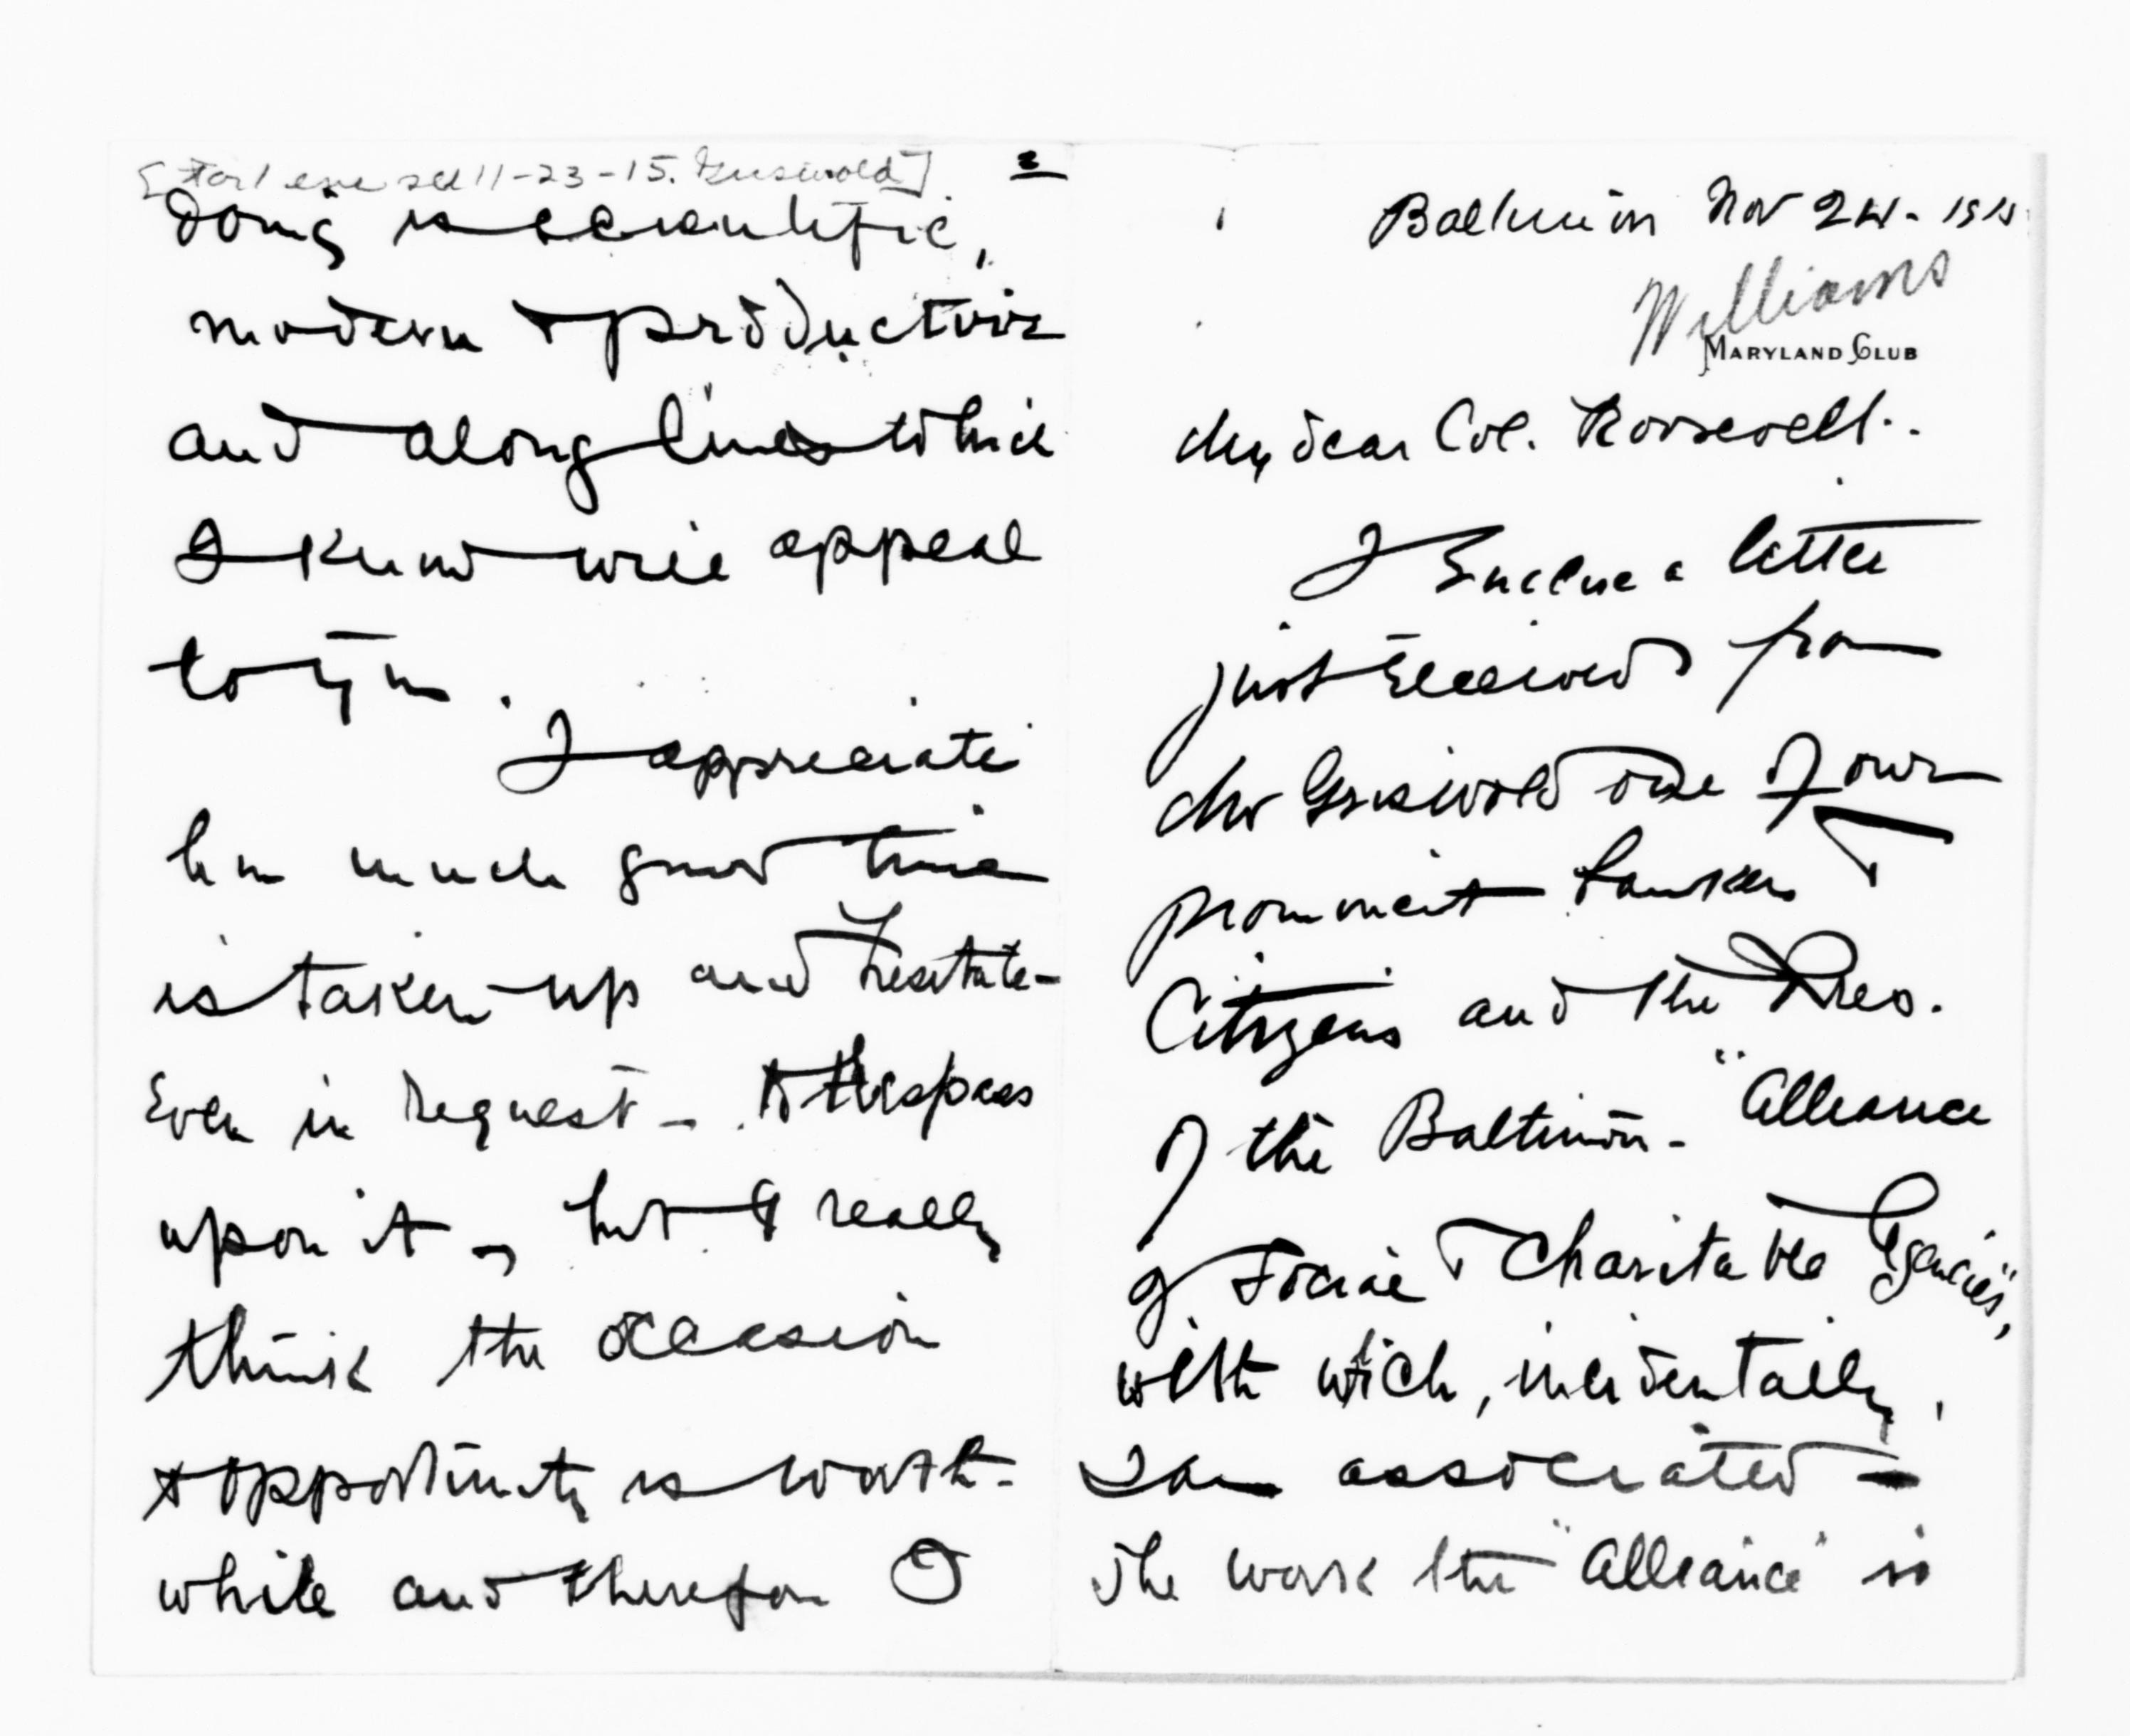 Baltimore Nov 24 - 1915
Williams
MARYLAND CLUB
My dear Col. Roosevelt.
I enclose a letter
just received from
Mr Griswold one of our
prominent bankers
Citizens and the Pres.
of the Baltimore - "Alliance
of Social & Charitable Agencies",
with wich, incidentally,
I am associated -
The work the "Alliance" is
2
[For 1 enc see 11-23-15. Griswold]
doing is scientific,
modern & productive
and along lines which
I know will appeal
to you.
I appreciate
how much your time
is taken up and hesitate -
Even in request - to trespass
upon it -, but I really
think the occasion
& opportunity is worth-
while and therefore I